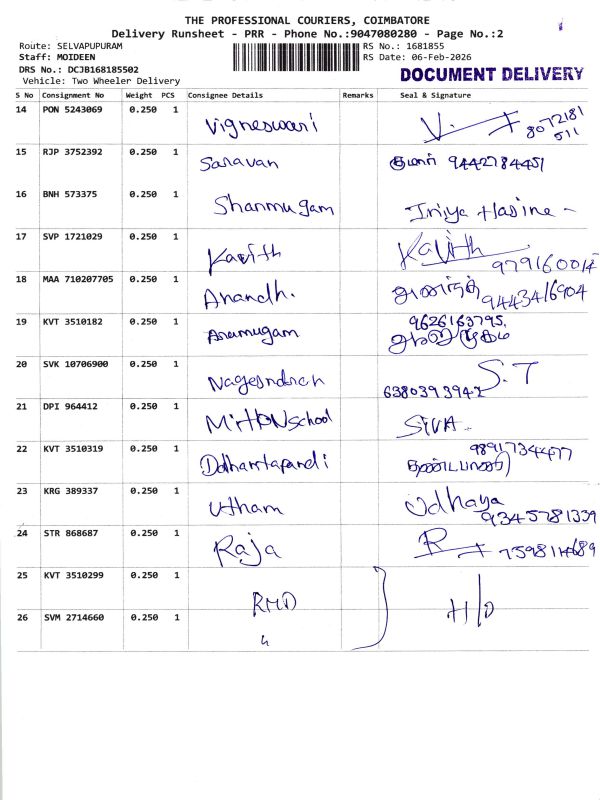 THE PROFESSIONAL COURIERS, COIMBATORE
Delivery Runsheet - PRR - Phone No.:9047080280 - Page No.:2
Route: SELVAPUPURAM RS No.: 1681855
Staff: MOIDEEN RS Date: 06-Feb-2026
DRS No.: DCJB168185502 DOCUMENT DELIVERY
Vehicle: Two Wheeler Delivery
S No Consignment No Weight PCS Consignee Details Remarks Seal & Signature
14 PON 5243069 0.250 1 Vigneswari 8072181
511
15 RJP 3752392 0.250 1 Saravan 9442784451
16 BNH 573375 0.250 1 Shanmugam
17 SVP 1721029 0.250 1 Kavith Kavith
979160014
18 MAA 710207705 0.250 1 Anandh. 9443416904
19 KVT 3510182 0.250 1 Arumugam 9626163795.
20 SVK 10706900 0.250 1 S.T
6380393942
21 DPI 964412 0.250 1 School SIVA
22 KVT 3510319 0.250 1
23 KRG 389337 0.250 1 Utham Udhaya
9345781339
24 STR 868687 0.250 1 Raja R
25 KVT 3510299 0.250 1 RMD H/D
26 SVM 2714660 0.250 1 "